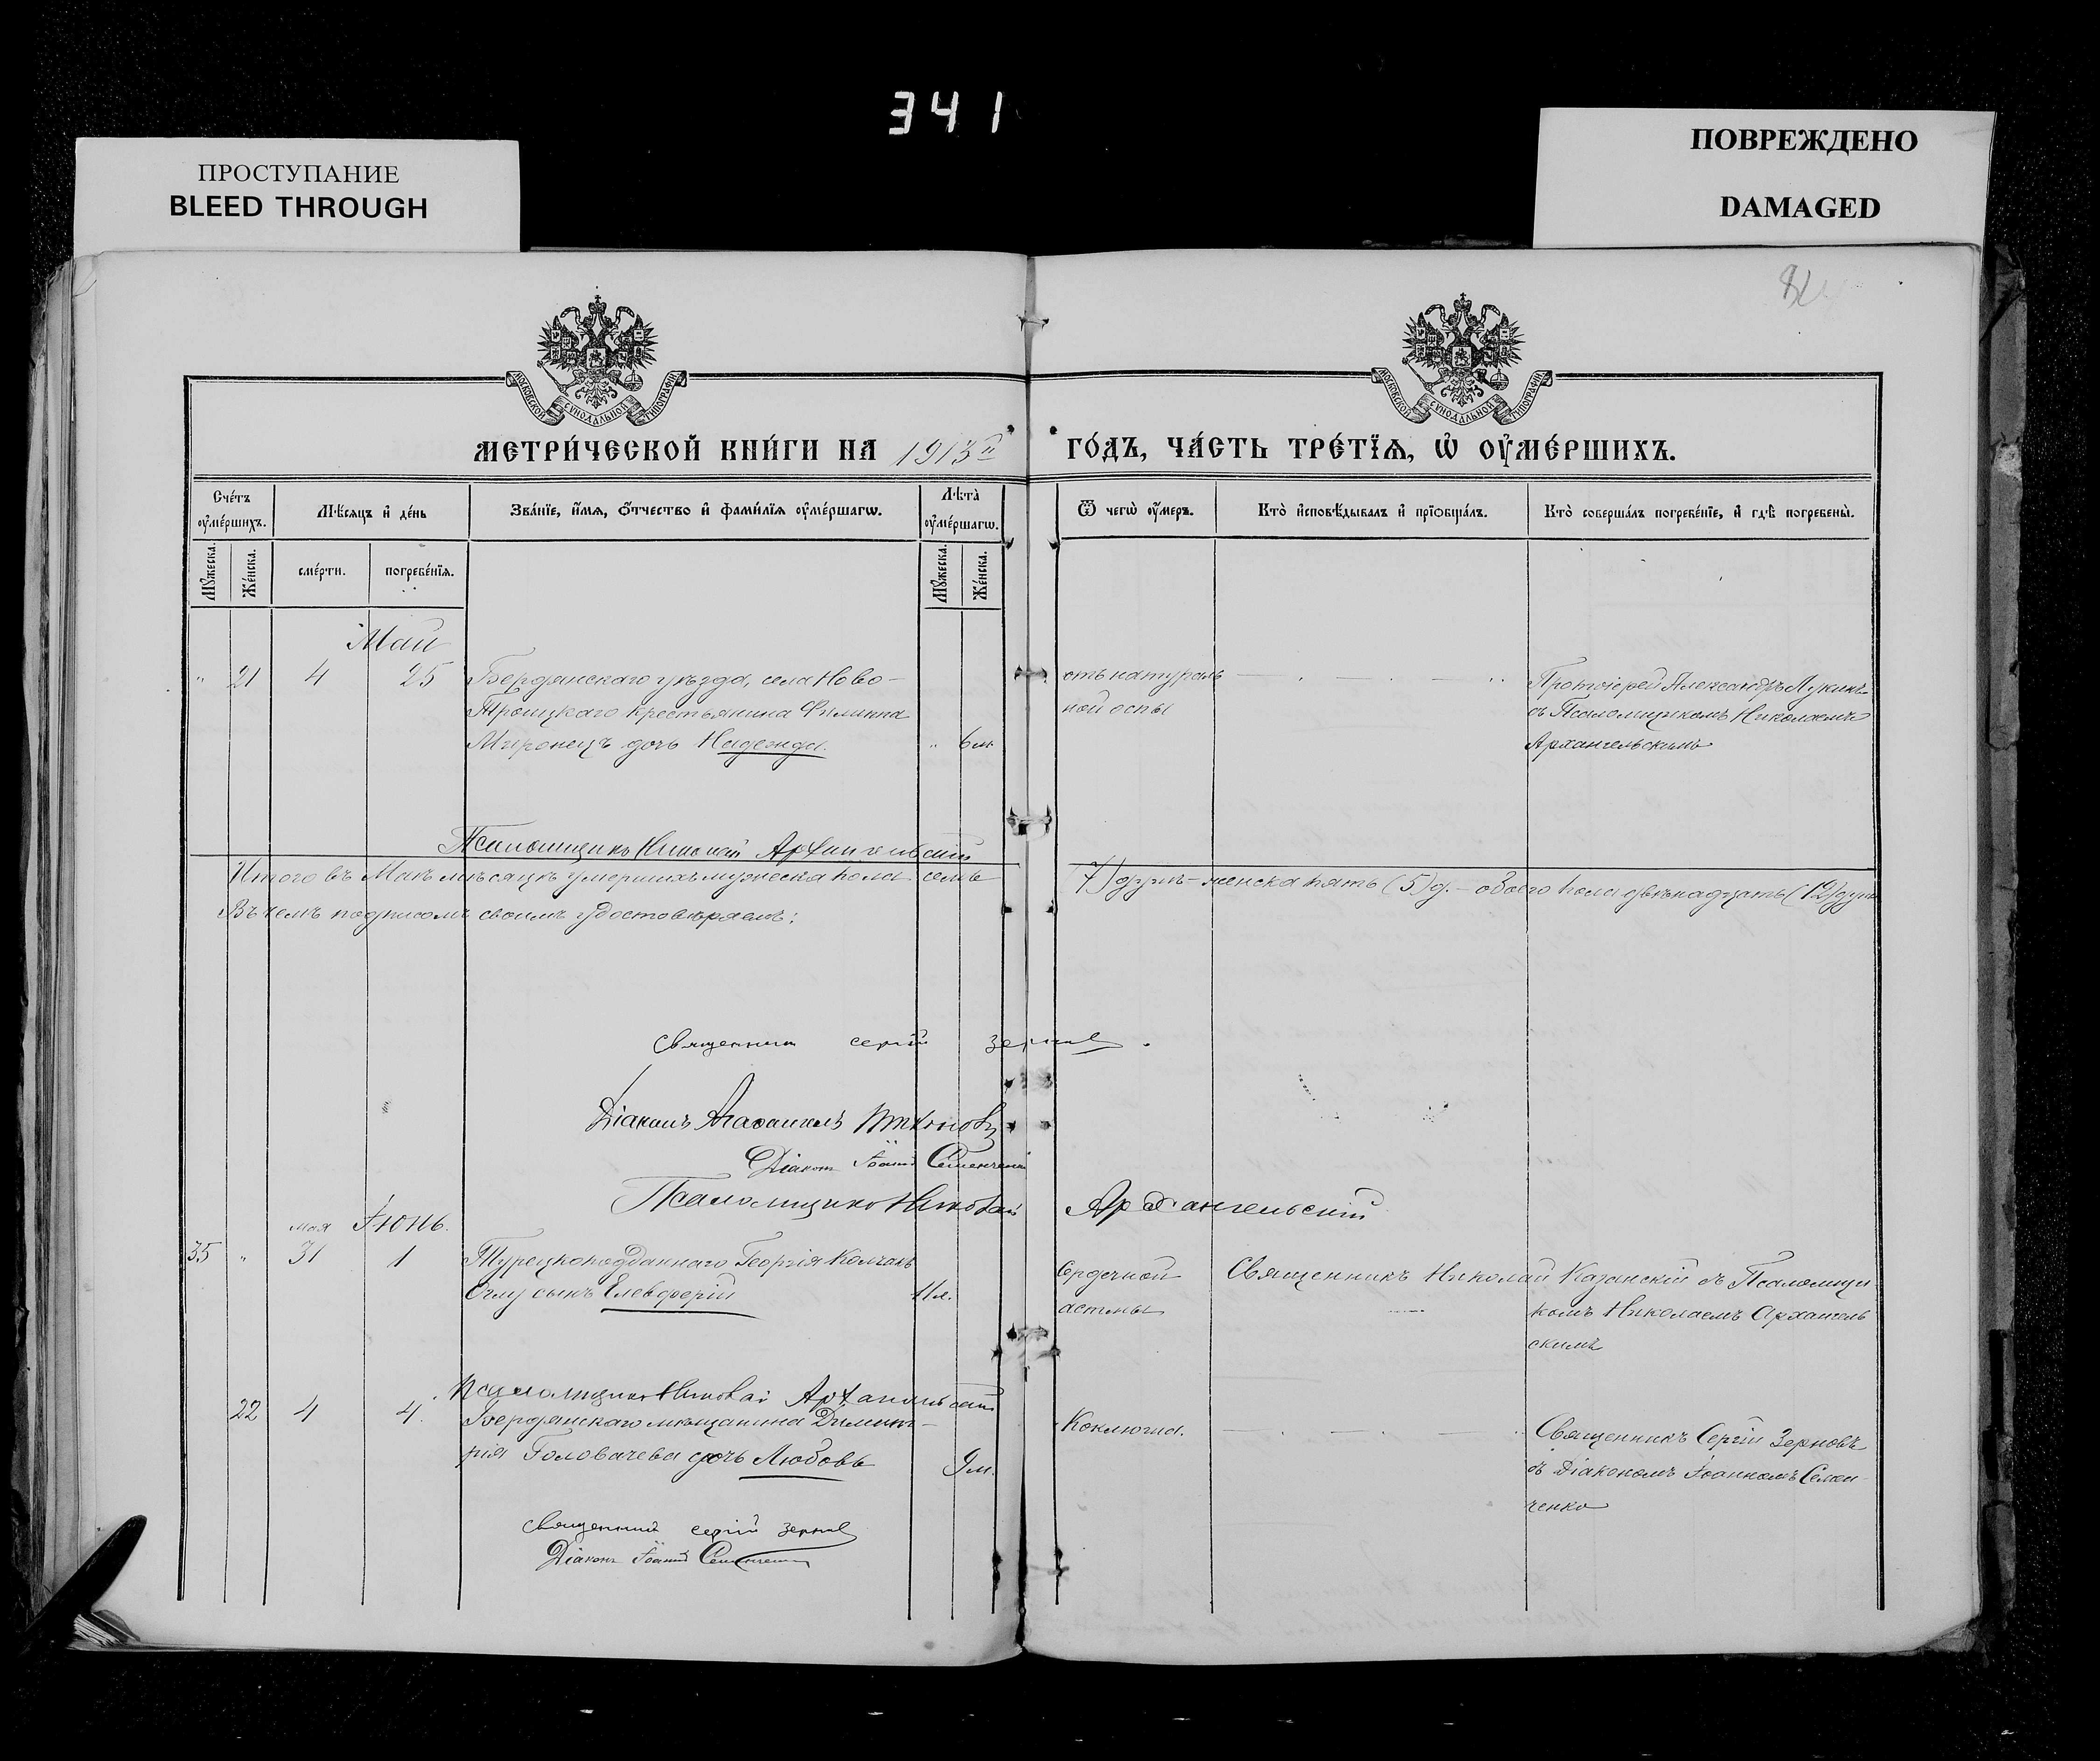 341
ПРОСТУПАНИЕ
BLEED THROUGH
ПОВРЕЖДЕНО
DAMAGED
МОСКОВСКОЙ СѴНОДАЛЬНОЙ ТИПОГРАФІИ
МОСКОВСКОЙ СѴНОДАЛЬНОЙ ТИПОГРАФІИ
МЕТРИ́ЧЕСКОЙ КНИ́ГИ НА 1913й ГО́ДЪ, ЧА́СТЬ ТРЕ́ТЇѦ, Ѡ҆ ОУ҆МЕ́РШИХЪ.
Сче́тъ оу҆ме́ршихъ.
Мѣ́сѧцъ и҆ де́нь
Зва́нїе, и҆́мѧ, ѻ҆́тчество и҆ фами́лїѧ оу҆ме́ршагѡ.
Лѣ́та оу҆ме́ршагѡ.
Ѿ чегѡ̀ оу҆́меръ.
Кто̀ и҆сповѣ́дывалъ и҆ прїѻбща́лъ.
Кто̀ соверша́лъ погребе́нїе, и҆ гдѣ̀ погребены̀.
Мꙋ́жеска.
Же́нска.
сме́рти.
погребе́нїѧ.
Мꙋ́жеска.
Же́нска.
Май
" 21 4 25 Бердянскаго уѣзда, села Ново-
Троицкаго крестьянина Филиппа
Миронецъ дочь Надежда. " 6 м.
отъ натураль
ной оспы
Протоіерей Александръ Лукинъ
съ Псаломщикомъ Николаемъ
Архангельскимъ
Псаломщикъ Николай Архангельскій
Итого въ Маѣ мѣсяцѣ умершихъ мужеска пола семь (7) душъ - женска пять (5) д. - обоего пола двѣнадцать (12) душъ
Въ чемъ подписомъ своимъ удостовѣряемъ:
Священникъ Сергій Зерновъ.
Діаконъ Агаѳангелъ
Діаконъ Іоаннъ Семенченко
Псаломщикъ Николай Архангельскій
мая Іюнь.
35 " 31 1 Турецкоподданнаго Георгія Колчакъ
Оглу сынъ Елевферій 11 л.
Сердечной
астмы
Священникъ Николай Казанскій съ Псаломщи
комъ Николаемъ Архангель
скимъ
Псаломщикъ Николай Архангельскій
22 4 4. Бердянскаго мѣщанина Димит-
рія Головачева дочь Любовь 9 м.
Коклюша.
Священникъ Сергій Зерновъ
съ Діакономъ Іоанномъ Семен-
ченко
Священникъ Сергій Зерновъ
Діаконъ Іоаннъ Семенченко